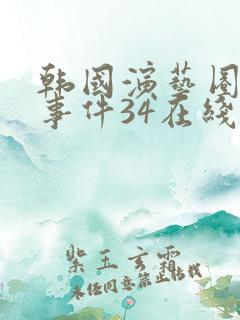 韩国演艺圈
事件34在线
紫玉玄霜
未经同意禁止转载